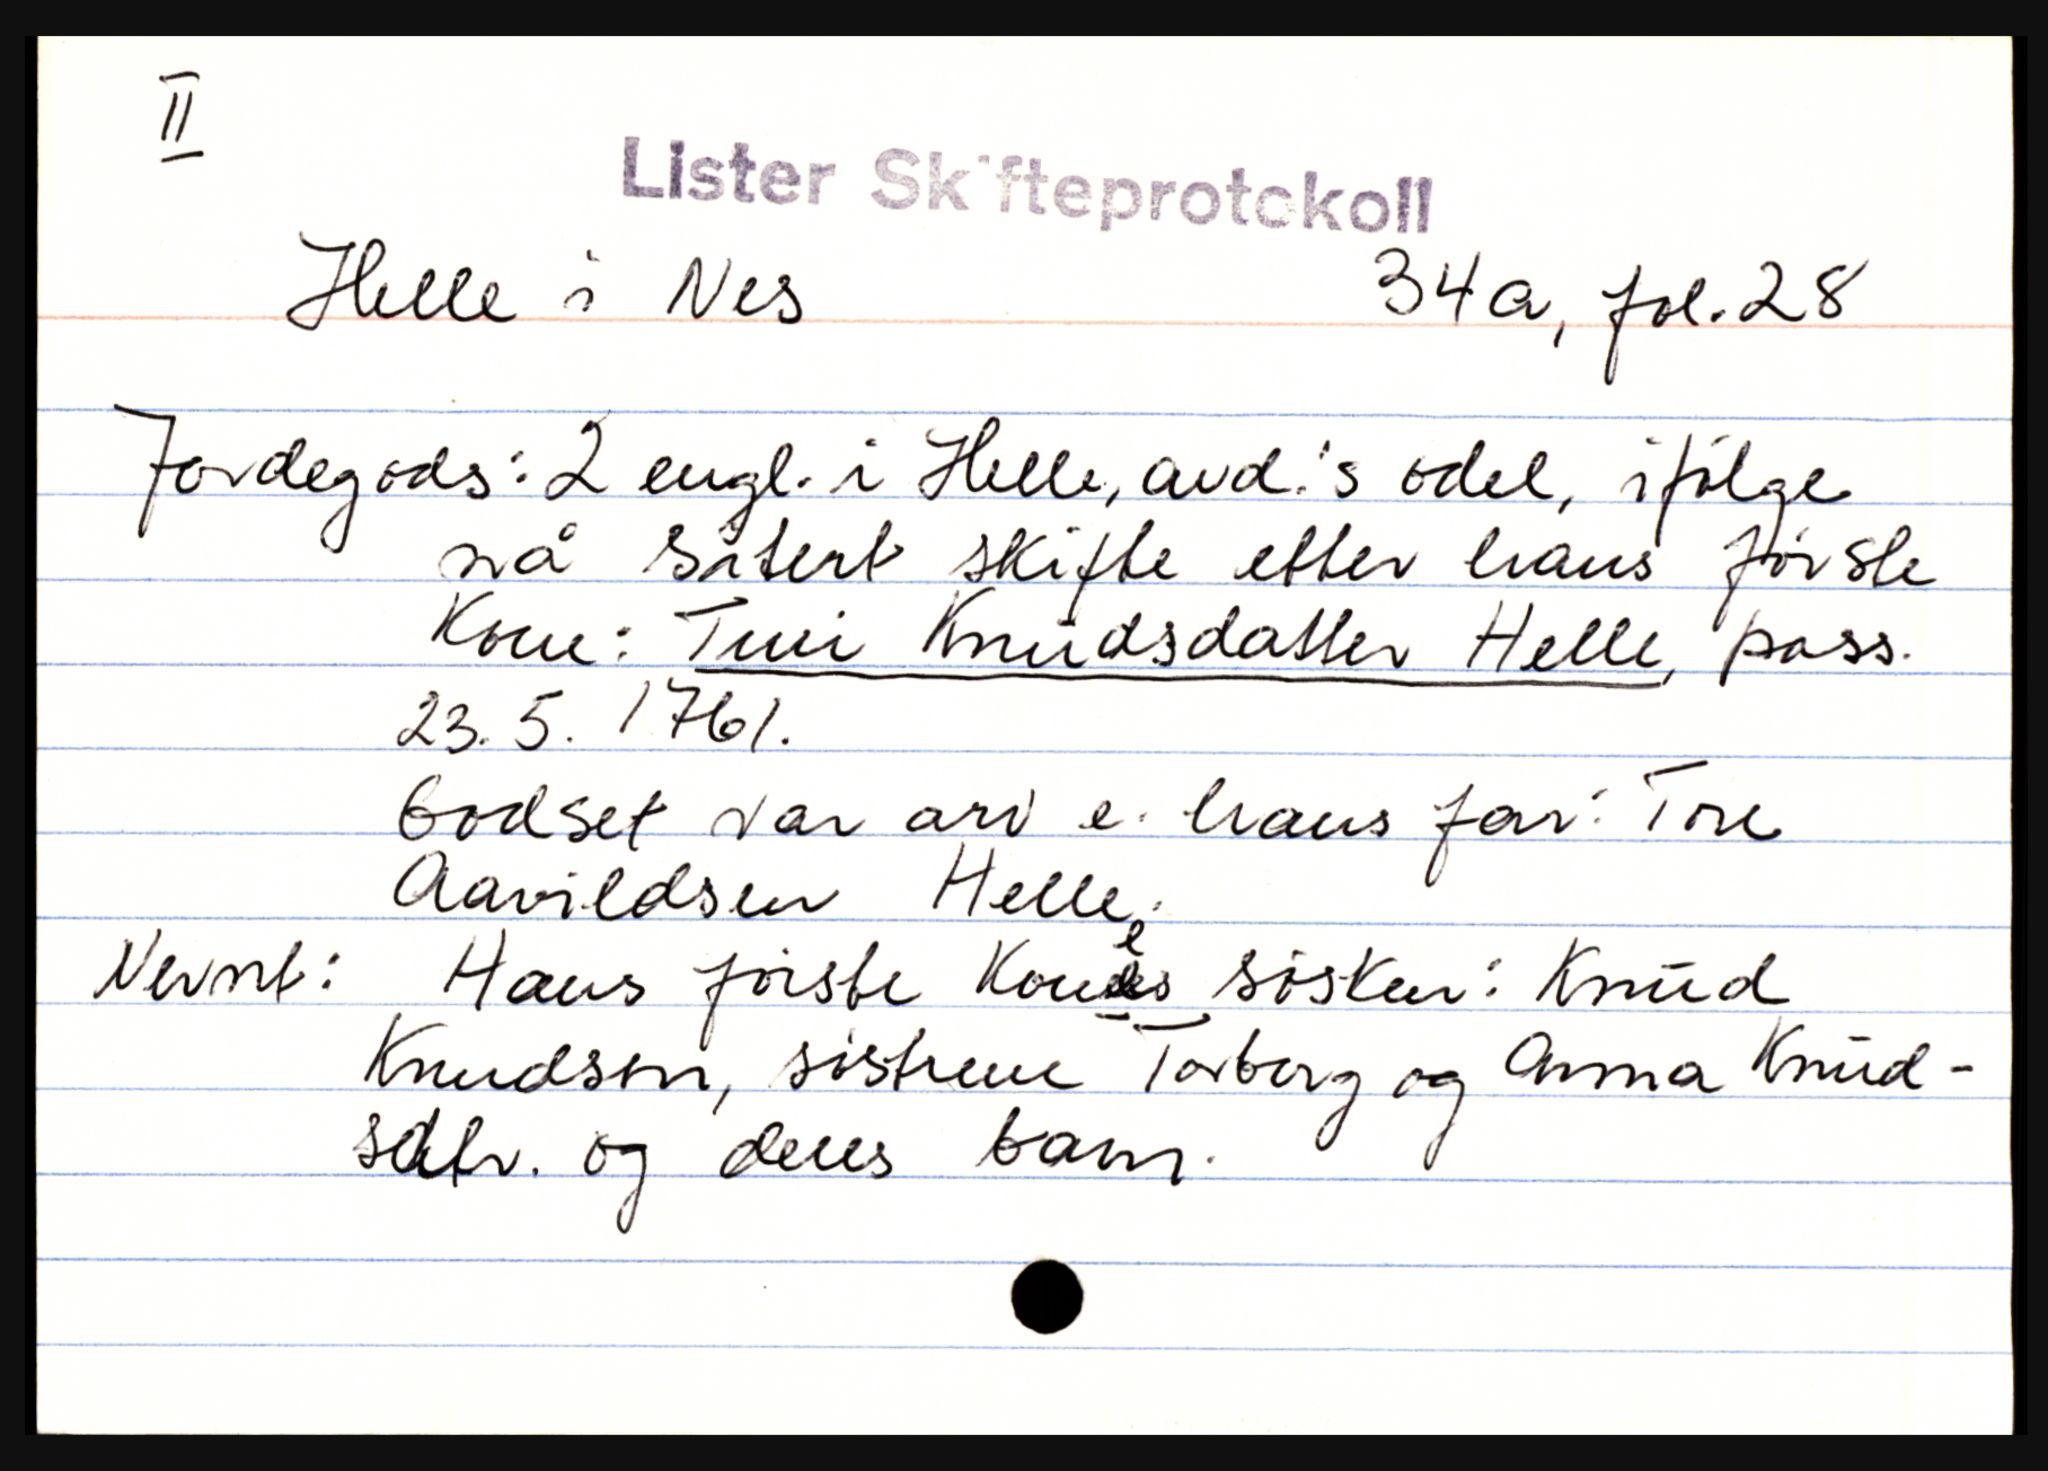 II
Lister Skifteprotokoll
Helle i Nes 34a, fol. 28
Jordegods: 2 engl. i Helle, avd.'s odel, ifølge
nå sitert skifte etter hans første
kone: Turi Knudsdatter Helle, pass.
23.5. 1761.
Godset var arv e. hans far: Tore
Aavildsen Helle.
Nevnt: Hans første kones søsken: Knud
Knudsen, søstrene Torborg og Anna Knud-
sdtr. og deres barn.